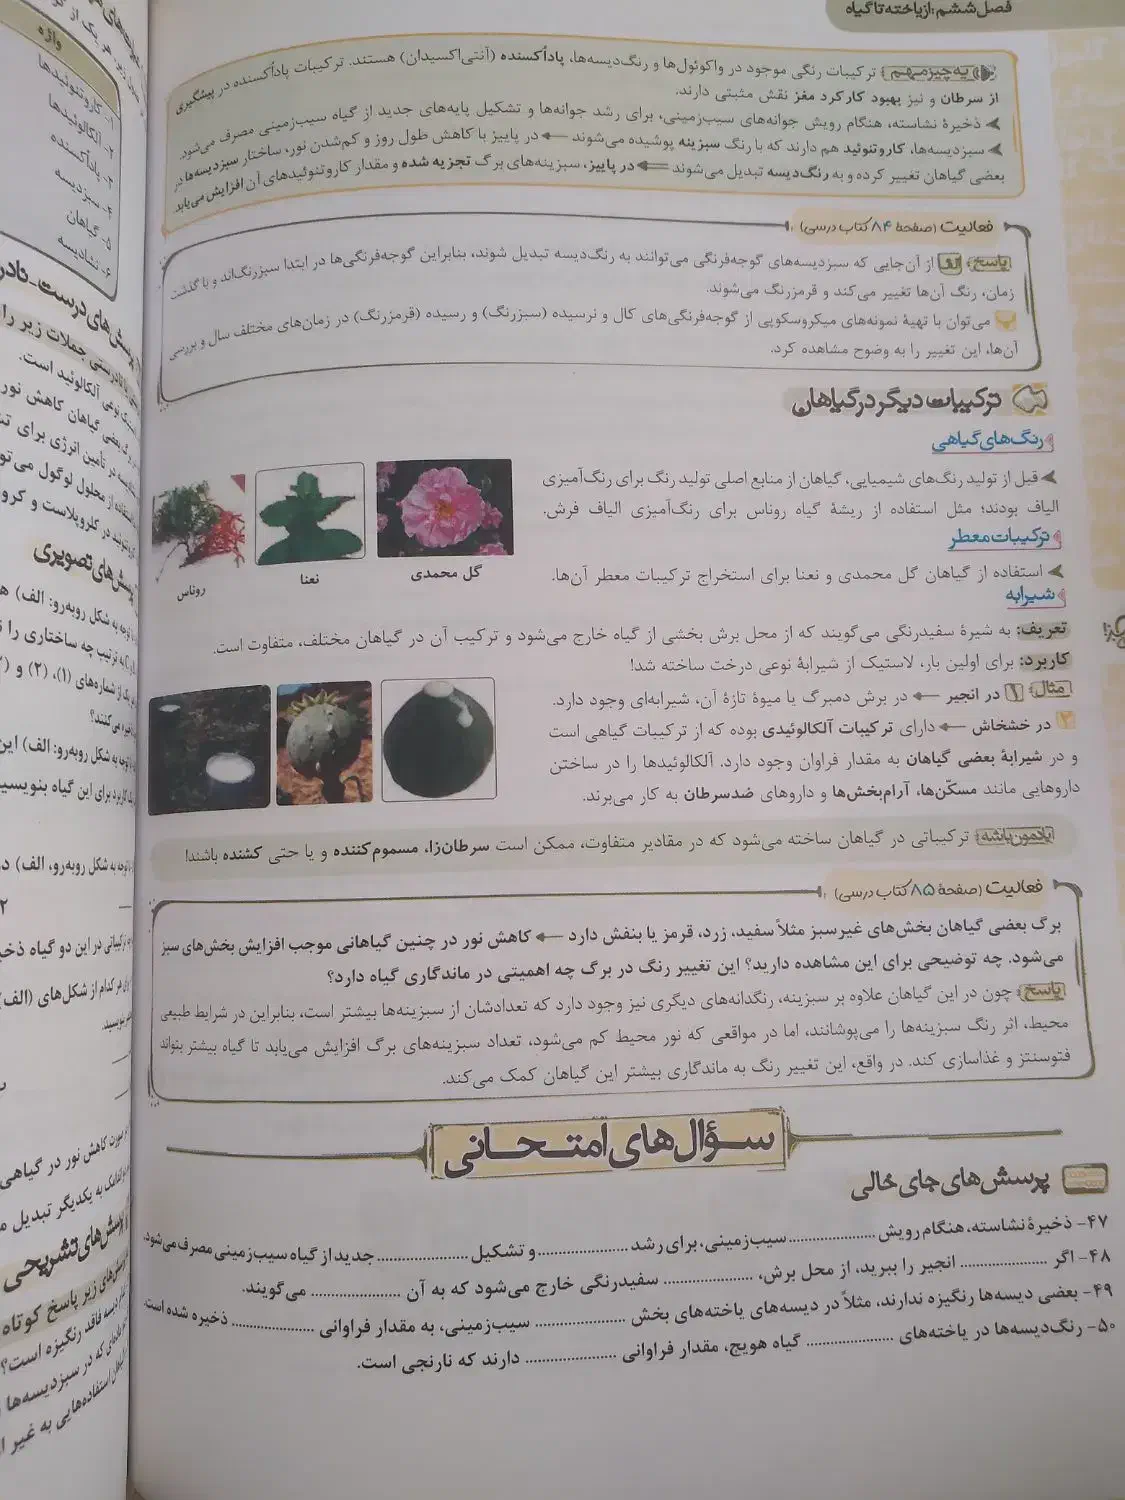 فصل ششم: از یاخته تا گیاه
یه چیز مهم ترکیبات رنگی موجود در واکوئول‌ها و رنگ‌دیسه‌ها، پاداُکسنده (آنتی‌اکسیدان) هستند. ترکیبات پاداُکسنده در پیشگیری
از سرطان و نیز بهبود کارکرد مغز نقش مثبتی دارند.
ذخیرهٔ نشاسته، هنگام رویش جوانه‌های سیب‌زمینی، برای رشد جوانه‌ها و تشکیل پایه‌های جدید از گیاه سیب‌زمینی مصرف می‌شود.
سبزدیسه‌ها، کاروتنوئید هم دارند که با رنگ سبزینه پوشیده می‌شوند ← در پاییز با کاهش طول روز و کم‌شدن نور، ساختار سبزدیسه‌ها در
بعضی گیاهان تغییر کرده و به رنگ‌دیسه تبدیل می‌شوند ← در پاییز، سبزینه‌های برگ تجزیه شده و مقدار کاروتنوئیدهای آن افزایش می‌یابد.
فعالیت (صفحهٔ ۸۴ کتاب درسی):
پاسخ الف از آن‌جایی که سبزدیسه‌های گوجه‌فرنگی می‌توانند به رنگ‌دیسه تبدیل شوند، بنابراین گوجه‌فرنگی‌ها در ابتدا سبزرنگ‌اند و با گذشت
زمان، رنگ آن‌ها تغییر می‌کند و قرمزرنگ می‌شوند.
ب می‌توان با تهیهٔ نمونه‌های میکروسکوپی از گوجه‌فرنگی‌های کال و نرسیده (سبزرنگ) و رسیده (قرمزرنگ) در زمان‌های مختلف سال و بررسی
آن‌ها، این تغییر را به وضوح مشاهده کرد.
ترکیبات دیگر در گیاهان
رنگ‌های گیاهی
قبل از تولید رنگ‌های شیمیایی، گیاهان از منابع اصلی تولید رنگ برای رنگ‌آمیزی
الیاف بودند؛ مثل استفاده از ریشهٔ گیاه روناس برای رنگ‌آمیزی الیاف فرش.
ترکیبات معطر
استفاده از گیاهان گل محمدی و نعنا برای استخراج ترکیبات معطر آن‌ها.
گل محمدی
نعنا
روناس
شیرابه
تعریف: به شیرهٔ سفیدرنگی می‌گویند که از محل برش بخشی از گیاه خارج می‌شود و ترکیب آن در گیاهان مختلف، متفاوت است.
کاربرد: برای اولین بار، لاستیک از شیرابهٔ نوعی درخت ساخته شد!
مثال: ۱ در انجیر ← در برش دمبرگ یا میوهٔ تازهٔ آن، شیرابه‌ای وجود دارد.
۲ در خشخاش ← دارای ترکیبات آلکالوئیدی بوده که از ترکیبات گیاهی است
و در شیرابهٔ بعضی گیاهان به مقدار فراوان وجود دارد. آلکالوئیدها را در ساختن
داروهایی مانند مسکّن‌ها، آرام‌بخش‌ها و داروهای ضدسرطان به کار می‌برند.
یادمون باشه ترکیباتی در گیاهان ساخته می‌شود که در مقادیر متفاوت، ممکن است سرطان‌زا، مسموم‌کننده و یا حتی کشنده باشند!
فعالیت (صفحهٔ ۸۵ کتاب درسی):
برگ بعضی گیاهان بخش‌های غیرسبز مثلاً سفید، زرد، قرمز یا بنفش دارد ← کاهش نور در چنین گیاهانی موجب افزایش بخش‌های سبز
می‌شود. چه توضیحی برای این مشاهده دارید؟ این تغییر رنگ در برگ چه اهمیتی در ماندگاری گیاه دارد؟
پاسخ چون در این گیاهان علاوه بر سبزینه، رنگدانه‌های دیگری نیز وجود دارد که تعدادشان از سبزینه‌ها بیشتر است، بنابراین در شرایط طبیعی
محیط، اثر رنگ سبزینه‌ها را می‌پوشانند، اما در مواقعی که نور محیط کم می‌شود، تعداد سبزینه‌های برگ افزایش می‌یابد تا گیاه بیشتر بتواند
فتوسنتز و غذاسازی کند. در واقع، این تغییر رنگ به ماندگاری بیشتر این گیاهان کمک می‌کند.
سؤال‌های امتحانی
پرسش‌های جای خالی
۴۷- ذخیرهٔ نشاسته، هنگام رویش .................... سیب‌زمینی، برای رشد .................... و تشکیل .................... جدید از گیاه سیب‌زمینی مصرف می‌شود.
۴۸- اگر .................... انجیر را ببرید، از محل برش، .................... سفیدرنگی خارج می‌شود که به آن .................... می‌گویند.
۴۹- بعضی دیسه‌ها رنگیزه ندارند، مثلاً در دیسه‌های یاخته‌های بخش .................... سیب‌زمینی، به مقدار فراوانی .................... ذخیره شده است.
۵۰- رنگ‌دیسه‌ها در یاخته‌های .................... گیاه هویج، مقدار فراوانی .................... دارند که نارنجی است.
واژه
۱- کاروتنوئیدها
۲- آلکالوئیدها
۳- پاداُکسنده
۴- سبزدیسه
۵- گیاهان
۶- نشادیسه
پرسش‌های درست-نادر
نادرستی جملات زیر را
نوعی آلکالوئید است.
برگ بعضی گیاهان کاهش نور
در تأمین انرژی برای
استفاده از محلول لوگول می‌تو
در کلروپلاست و کرو
پرسش‌های تصویری
توجه به شکل روبه‌رو: الف)
به ترتیب چه ساختاری را
از شماره‌های (۱)، (۲) و
می‌کنند؟
توجه به شکل روبه‌رو: الف) این
کاربرد برای این گیاه بنویسید
توجه به شکل روبه‌رو، الف)
ترکیباتی در این دو گیاه ذخی
کدام از شکل‌های (الف)
صورت کاهش نور در گیاهی
به یکدیگر تبدیل
پرسش‌های تشریحی
زیر پاسخ کوتاه
دیسه فاقد رنگیزه است؟
که در سبزدیسه‌ها
استفاده‌هایی به غیر از